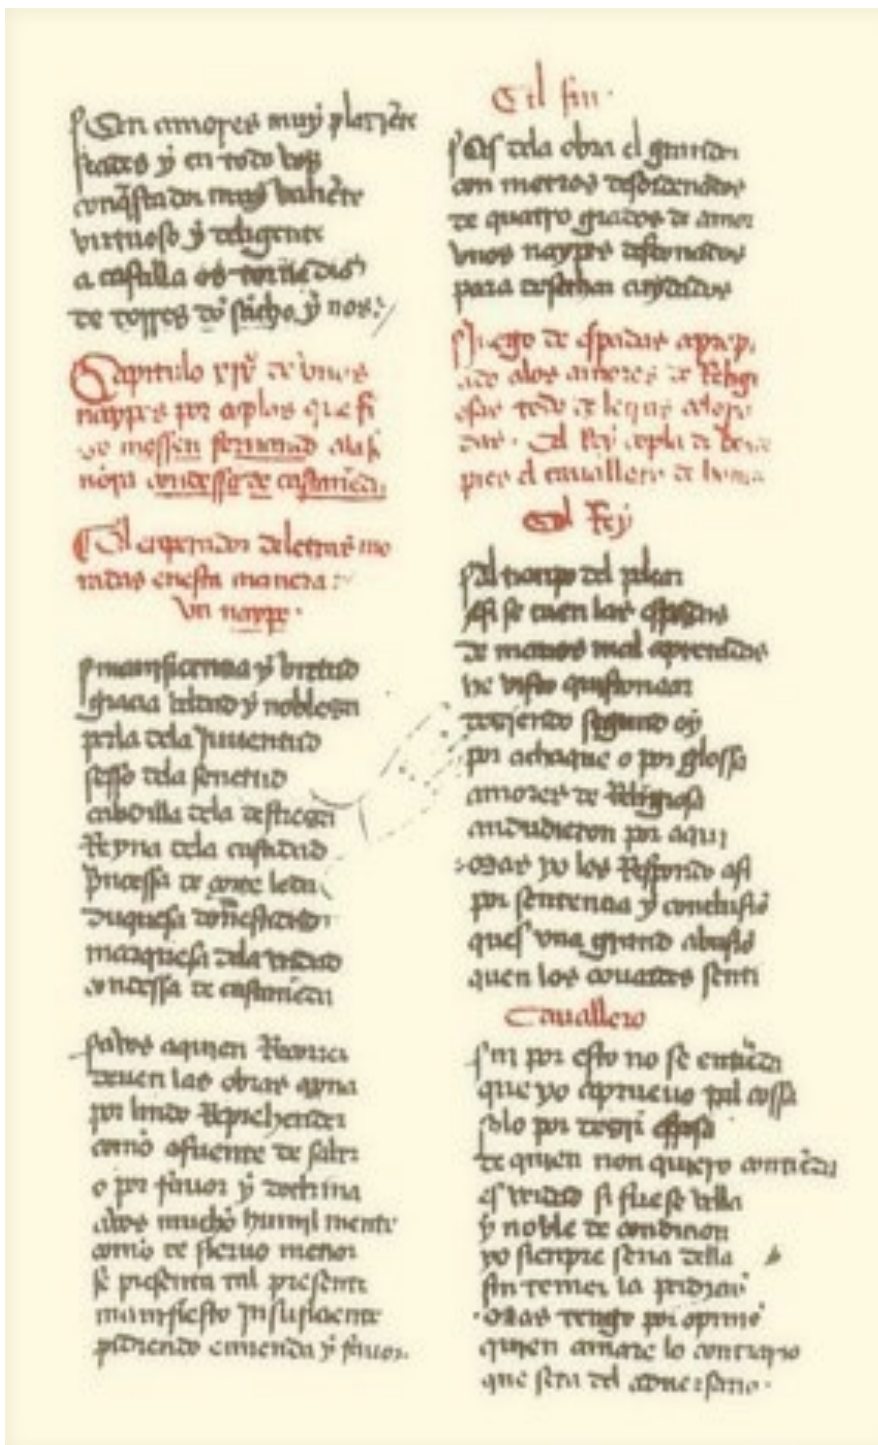 En amores muy plazẽte
y en todo vos
conq̃stador muy valiẽte
virtuoso y deligente
a castilla os torne dios
de torres dõ sãcho y nos
Capitulo de vnos
naypes por coplas que fi
zo mossen fernando ala se
nora condessa de castañeda
El enperador de letras mo
radas enesta manera
Vn naype
manificencia y virtud
gracia beldad y nobleza
perla dela Juuentud
sesso dela senetud
cabdilla dela destreza
Reyna dela castidad
princessa de leda
Duquesa donestidad
marquesa dela verdad
condessa de castañeda
aquien Recorrer
deuen las obras
por lindo Reprehender
como afuente de saber
o por fauor y dotrina
alos mucho humil mente
como de sieruo menor
se presenta tal presente
manifiesto Insuficiente
pidiendo emienda y fauor
El fin
Es dela obra el
con metros desordenados
de quatro grados de amor
vnos naypes
para desechar cuydados
Juego de espadas apropi
ado alos amores de Religi
osas todo de
El Rey copla de doze
pies el cauallero de honze
El Rey
Al tienpo del pelear
asi se caen las espadas
de manos mal aprendidas
he visto questionar
diziendo segund oy
por achaque o por glossa
amores de Religiosa
andudieron por aqui
mas yo les Respondo asi
por sentencia y conclusiõ
ques vna grand abusiõ
quen los couardes senti
Cauallero
Ni por esto no se entiẽda
que yo aprueuo tal cossa
solo por dezir
de quien non quiero contiẽda
es verdad si fuese bella
y noble de condicion
yo sienpre seria della
sin temer la
mas tengo por opiniõ
quien amare lo contrario
que sera del aduersario